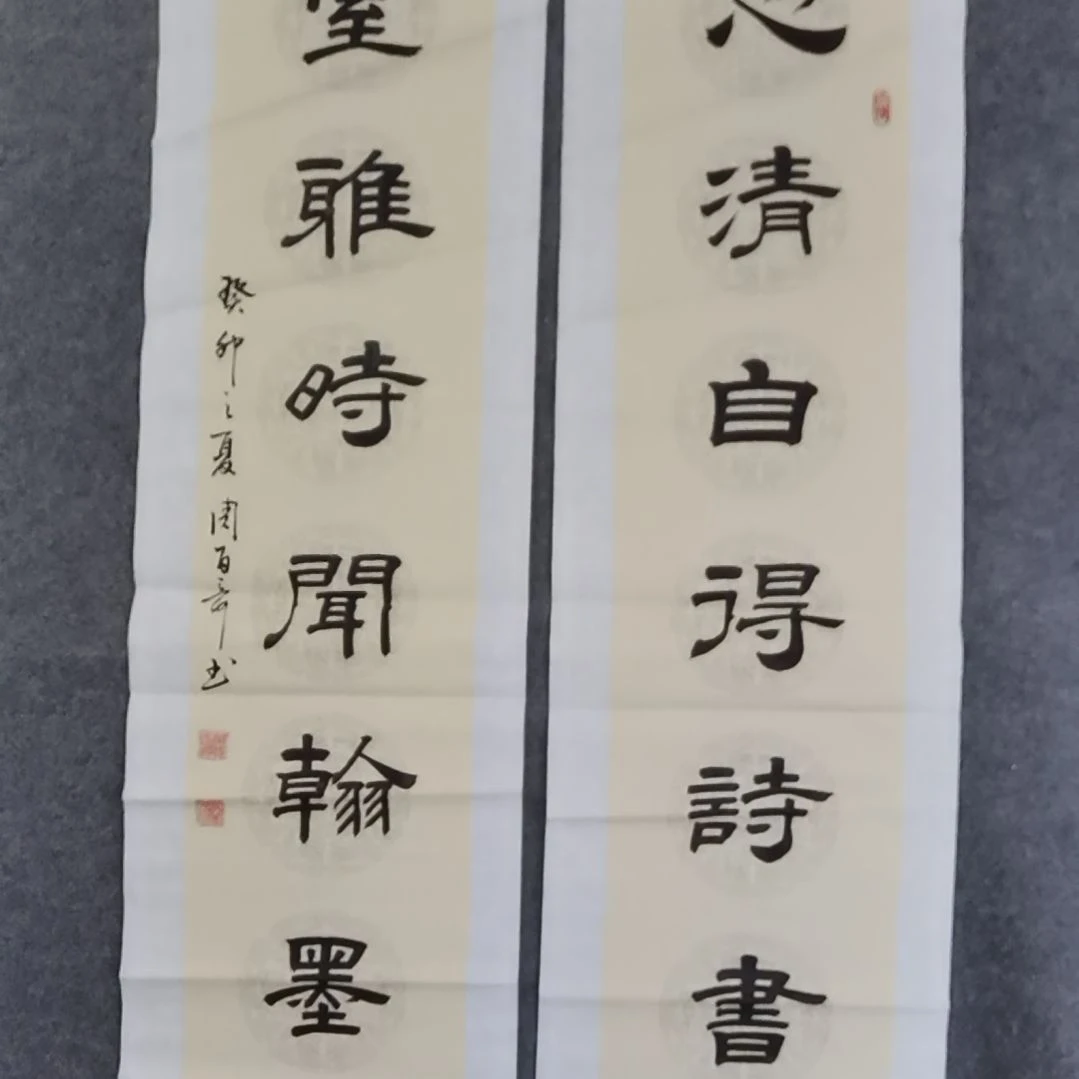 心清自得詩書
室雅時聞翰墨
癸卯之夏周百奇书